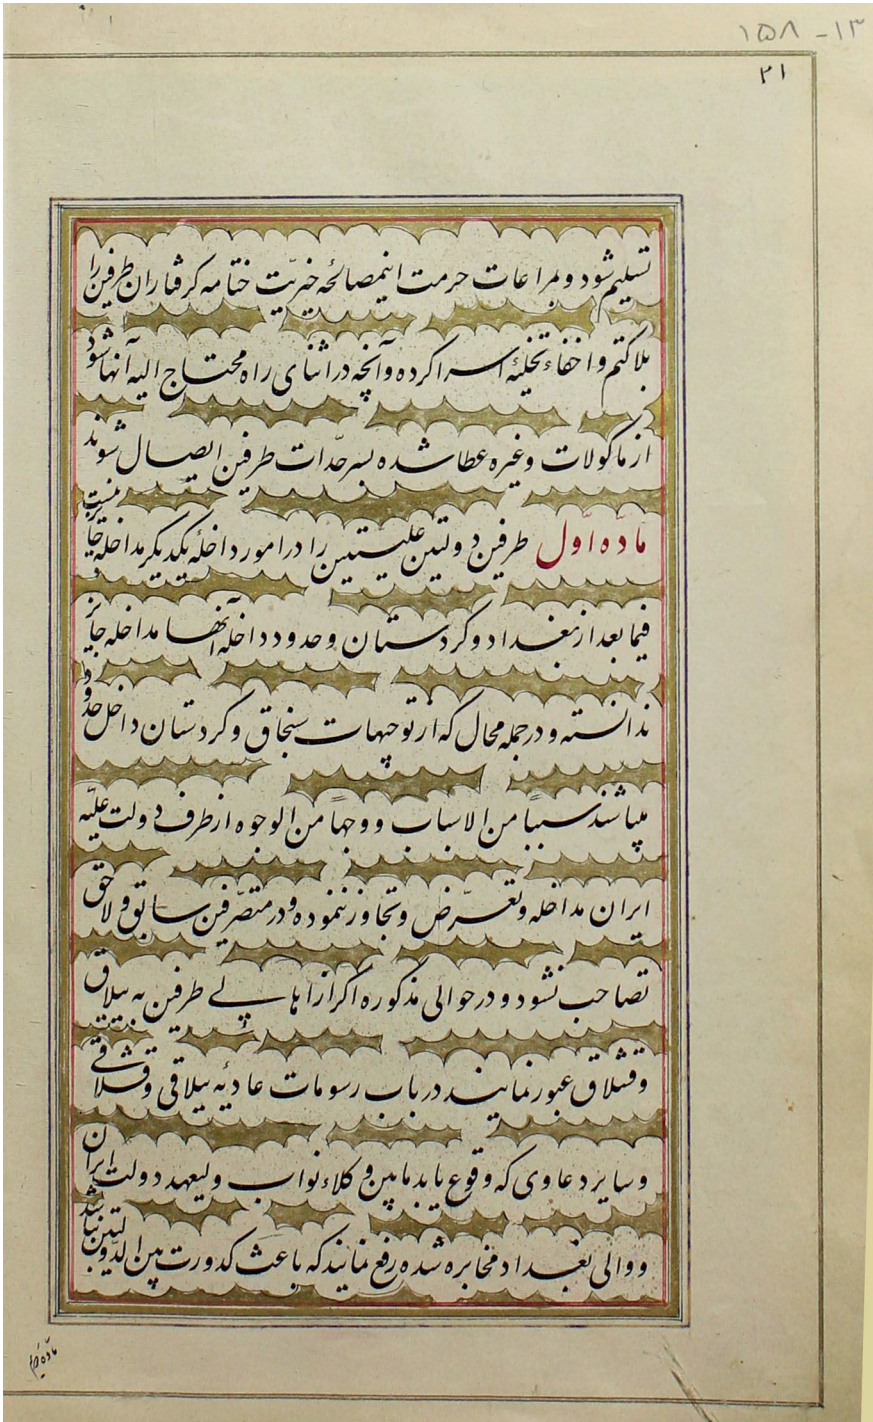 ۱۳ - ۱۵۸
۲۱
تسلیم شود و بمراعات حرمت اینمصالحهٔ خیریّت ختامه گرفتاران طرفین را
بلاکتم و اخفاء تخلیهٔ اسرا کرده و آنچه در اثنای راه محتاج الیه آنها شود
از ماکولات و غیره عطا شده بسرحدّات طرفین ایصال شوند
مادّه اوّل طرفین دولتین علیتین را در امور داخلهٔ یکدیگر مداخله جایز نیست
فیما بعد از بغداد و کردستان و حدود داخلهٔ آنها مداخله جایز
ندانسته و در جمله محال که از توجیهات سنجاق و کردستان داخل حدود
میباشند سبباً من الاسباب و وجهاً من الوجوه از طرف دولت علیّه
ایران مداخله و تعرّض و تجاوز ننموده و در متصرّفین سابق و لاحق
تصاحب نشود و در حوالی مذکوره اگر از اهالی طرفین به ییلاق
و قشلاق عبور نمایند در باب رسومات عادیّه ییلاقی و قشلاقی
و سایر دعاوی که وقوع یابد مابین وکلاء نواب ولیعهد دولت ایران
و والی بغداد مخابره شده رفع نمایند که باعث کدورت بین الدولتین نباشد
مادّه